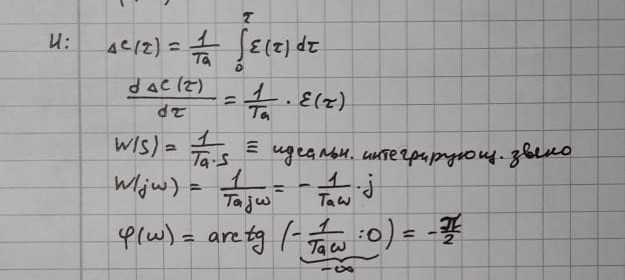 И: Δc(τ) = 1/Ta ∫₀^τ ε(τ) dτ
dΔc(τ)/dτ = 1/Ta · ε(τ)
W(s) = 1/(Ta·s) ≡ идеальн. интегрирующ. звено
W(jω) = 1/(Ta jω) = - 1/(Ta ω) · j
φ(ω) = arctg (- 1/(Ta ω) : 0) = - π/2
-∞